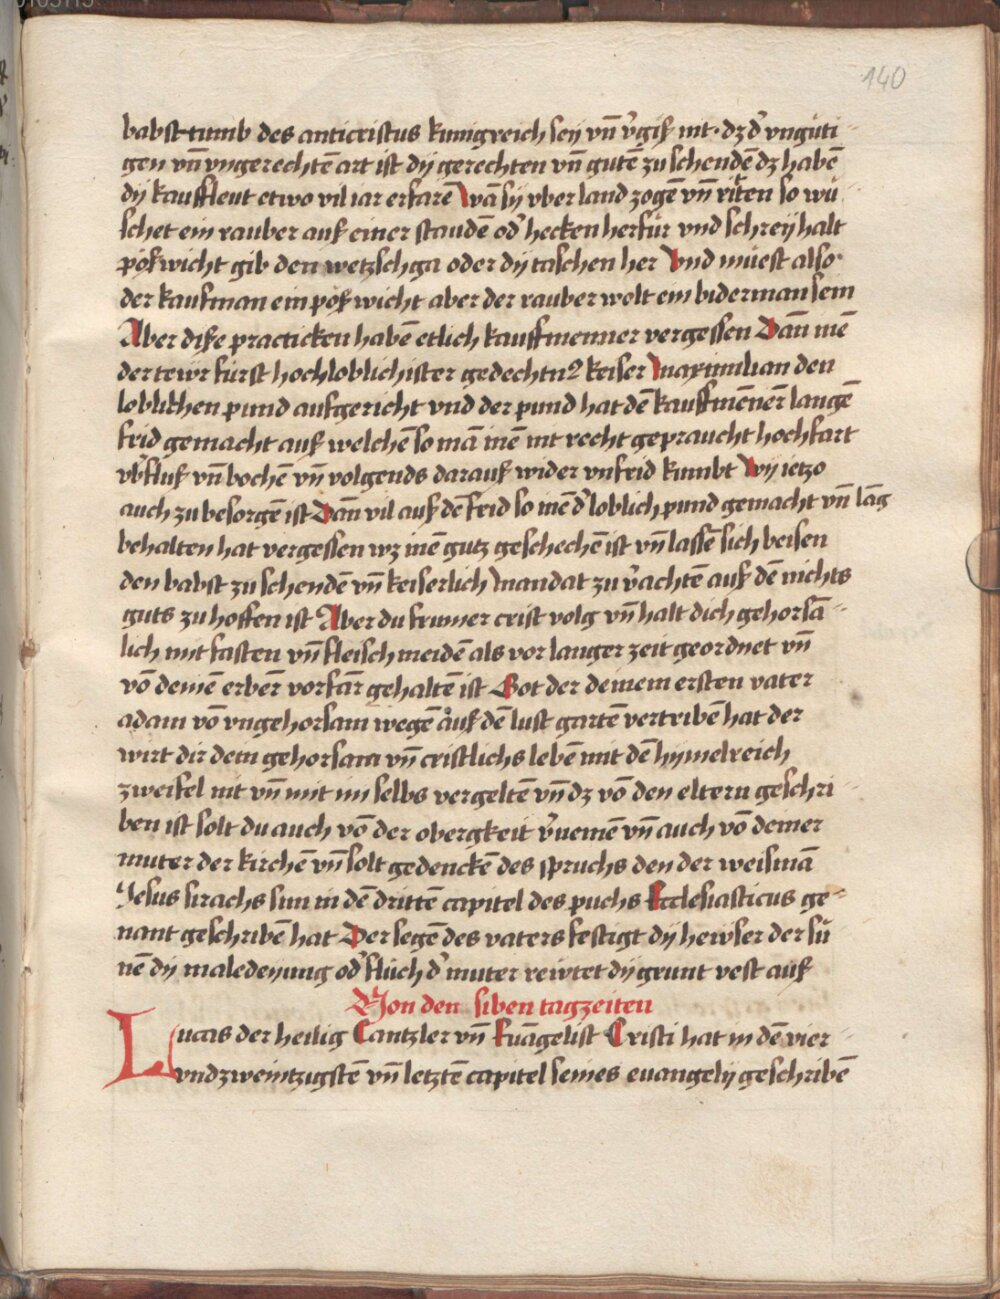 140
babst tumb des anticristus kunigreich seÿ vn̄ v̓giß nit · dz d̓ vngüti-
gen vn̄ vngerechtē art ist dÿ gerechten vn̄ gutē zu schendē dz habē
dÿ kauffleut etwo vil iar erfarē Wā sÿ vber land zogē vn̄ ritten so wü-
schet ein rauber auß einer staudē od̓ hecken herfür vnd schreÿ halt
pößwicht gib den wetzschga oder dÿ taschen her Vnd müest also
der kaufman ein pößwicht aber der rauber wolt ein biderman sein
Aber diße practicken habē etlich kauffmenner vergessen Dañ inē
der tewr fürst hochloblichister gedechtn9 keiser Maximilian den
loblichen pund aufgericht vnd der pund hat dē kauffmēnēr langē
frid gemacht auß welchē so mā inē nit recht gepraucht hochfart
vb̓fluß vn̄ bochē vn̄ volgends darauß wider vnfrid kumbt Wÿ ietzo
auch zu besorgē ist Dañ vil auß dē frid so inē d̓ loblich pund gemacht vn̄ lāg
behalten hat vergessen wz inē gutz geschechē ist vn̄ lassē sich beisen
den babst zu schendē vn̄ keiserlich Mandat zu v̓achtē auß dē nichts
guts zu hoffen ist Aber du frumer crist volg vn̄ halt dich gehorsā-
lich mit fasten vn̄ fleisch meidē als vor langer zeit geordnet vn̄
vō deinē erberr̄ vorfarr̄ gehaltē ist Got der deinem ersten vater
adam vō vngehorsam wegē auß dē lust gartē vertribē hat der
wirt dir dein gehorsam vn̄ cristlichs lebē mit dē hÿmelreich
zweifel nit vn̄ mit im selbs vergeltē vn̄ dz vō den eltern geschri-
ben ist solt du auch vō der obergkeit v̓nemē vn̄ auch vō deiner
muter der kirchē vn̄ solt gedenckē des spruchs den der weis mā
Jesus sirachs sun in dē drittē capitel des puchs Ecclesiasticus ge-
nant geschribē hat Der segē des vaters festigt dÿ hewser der sü-
nē dÿ maledeyung od̓ fluch d̓ muter rewtet dÿ grunt vest auß
Von den siben tagzeiten
Lucas der heilig Cantzler vn̄ Euāgelist Cristi hat in dē vier-
vndzweintzigstē vn̄ letztē capitel seines euangelÿ geschribē